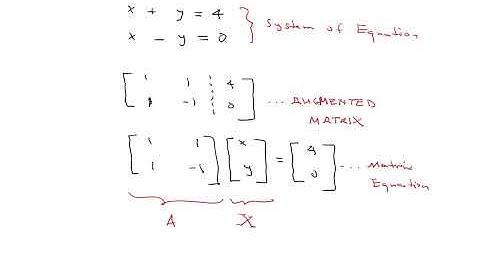 x + y = 4
x - y = 0
System of Equation
1 1 4
1 -1 0
... AUGMENTED
MATRIX
1 1 x = 4
1 -1 y 0
... Matrix
Equation
A X